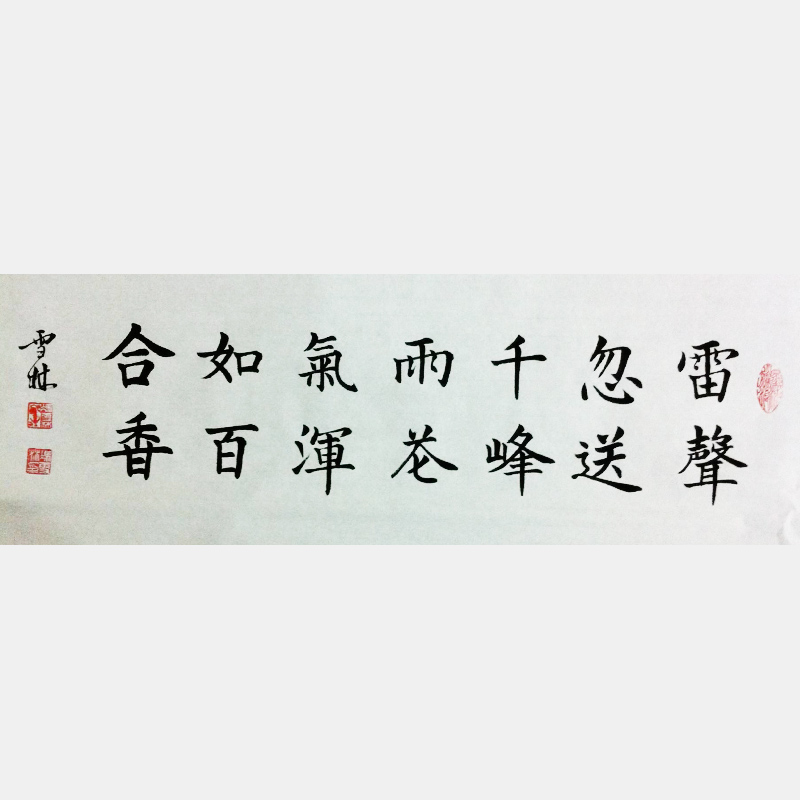 雷聲
忽送
千峰
雨花
氣渾
如百
合香
雪林